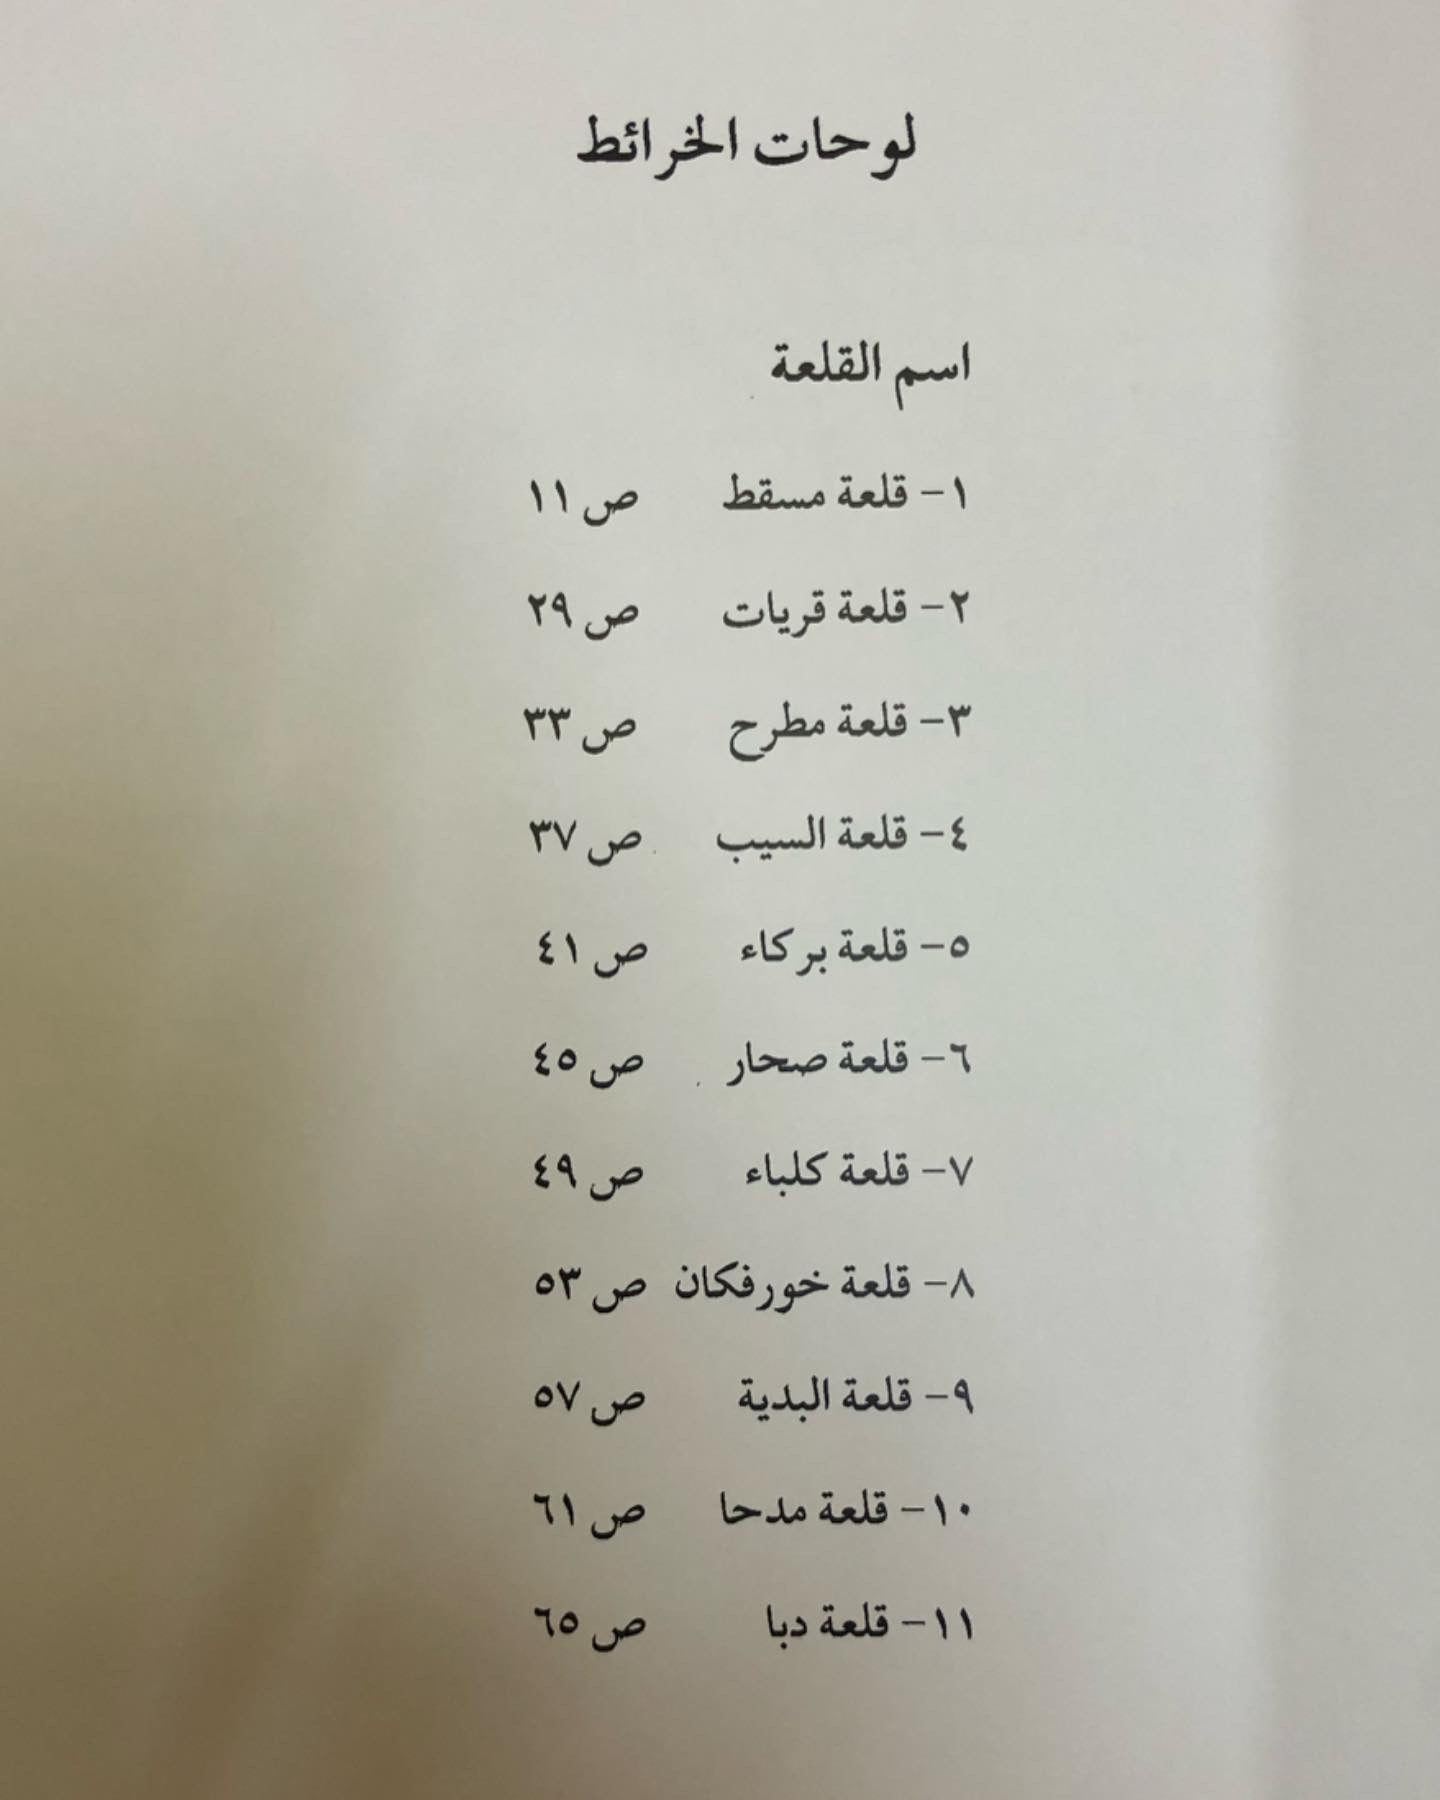 لوحات الخرائط
اسم القلعة
١- قلعة مسقط ص ١١
٢- قلعة قريات ص ٢٩
٣- قلعة مطرح ص ٣٣
٤- قلعة السيب ص ٣٧
٥- قلعة بركاء ص ٤١
٦- قلعة صحار ص ٤٥
٧- قلعة كلباء ص ٤٩
٨- قلعة خورفكان ص ٥٣
٩- قلعة البدية ص ٥٧
١٠- قلعة مدحا ص ٦١
١١- قلعة دبا ص ٦٥